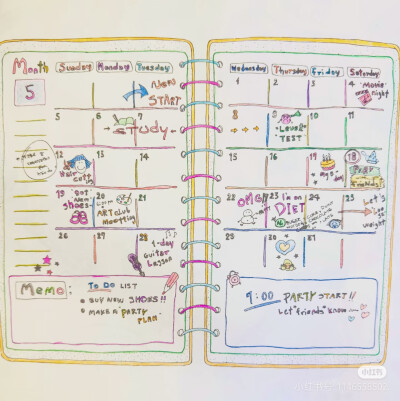 Month
5
Sunday
Monday
Tuesday
Wednesday
Thursday
Friday
Saturday
NEW
START
1
2
3
4
Movie
night
5
6
7
STUDY
8
9
10
11
"Level"
TEST
12
13
14
Hair
cut
15
16
17
18
Party
Friends
19
20
21
Got
New
shoes
ART club
meeting
22
23
24
25
OMG!!
I'm on
DIET
Let's
go
weight
26
27
28
1-day
guitar
Lesson
30
31
Memo:
To Do LIST
BUY NEW SHOES!!
MAKE A "PARTY
PLAN"
7:00 PARTY START!!
Let "friends" know
小红书